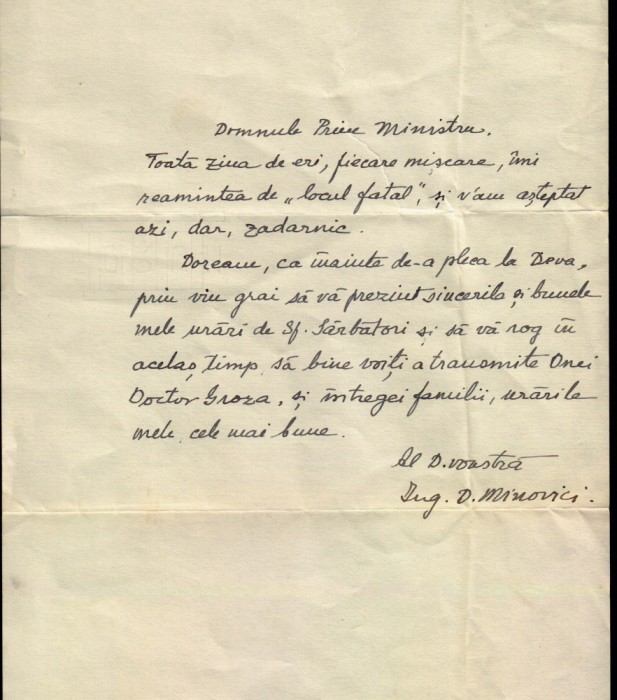 Domnule Prim Ministru.
Toată ziua de eri, fiecare mișcare, îmi
reamintea de „locul fatal”, și v'am așteptat
azi, dar, zadarnic.
Doream, ca înainte de-a pleca la Deva,
prin viu grai să vă prezint sincerile și bunele
mele urări de Sf. Sărbători și să vă rog în
acelaș timp să bine voiți a transmite Dnei
Doctor Groza, și întregei familii, urările
mele cele mai bune.
Al D.voastră
Ing. D. Minovici.